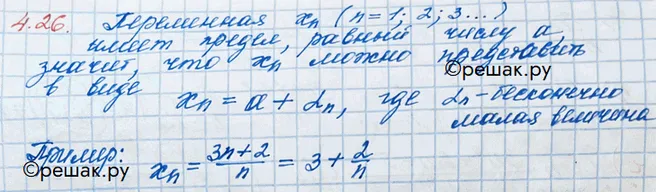 4.26. Переменная xₙ (n=1; 2; 3...)
имеет предел, равный числу a,
значит, что xₙ можно представить
©решак.ру
в виде xₙ = a + αₙ, где αₙ - бесконечно
малая величина
Пример: xₙ = (3n+2)/n = 3 + 2/n
©решак.ру